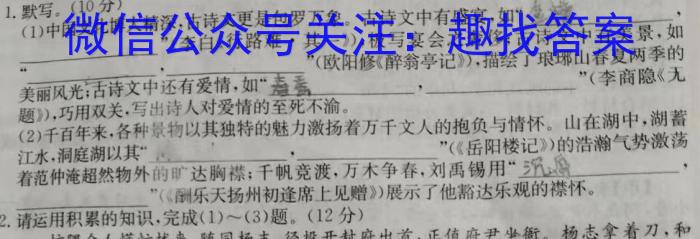 1.默写。(10分)
(1)中国文化博大精深,古诗文更是包罗万象。古诗文中有盛宴,如“
李白《行路难 其一》
微信公众号关注：趣找答案
景,如
“ , ”(欧阳修《醉翁亭记》),描绘了琅琊山春夏两季的
美丽风光;古诗文中还有爱情,如“ , ”(李商隐《无
题》),巧用双关,写出诗人对爱情的至死不渝。
(2)千百年来,各种景物以其独特的魅力激扬着万千文人的抱负与情怀。山在湖中,湖蓄
江水,洞庭湖以其“ , ”(《岳阳楼记》)的浩瀚气势激荡
着范仲淹超然物外的旷达胸襟;千帆竞渡,万木争春,刘禹锡用“沉舟
”(《酬乐天扬州初逢席上见赠》)展示了他豁达乐观的襟怀。
2.请运用积累的知识,完成(1)～(3)题。(12分)
杨志拿着刀,和